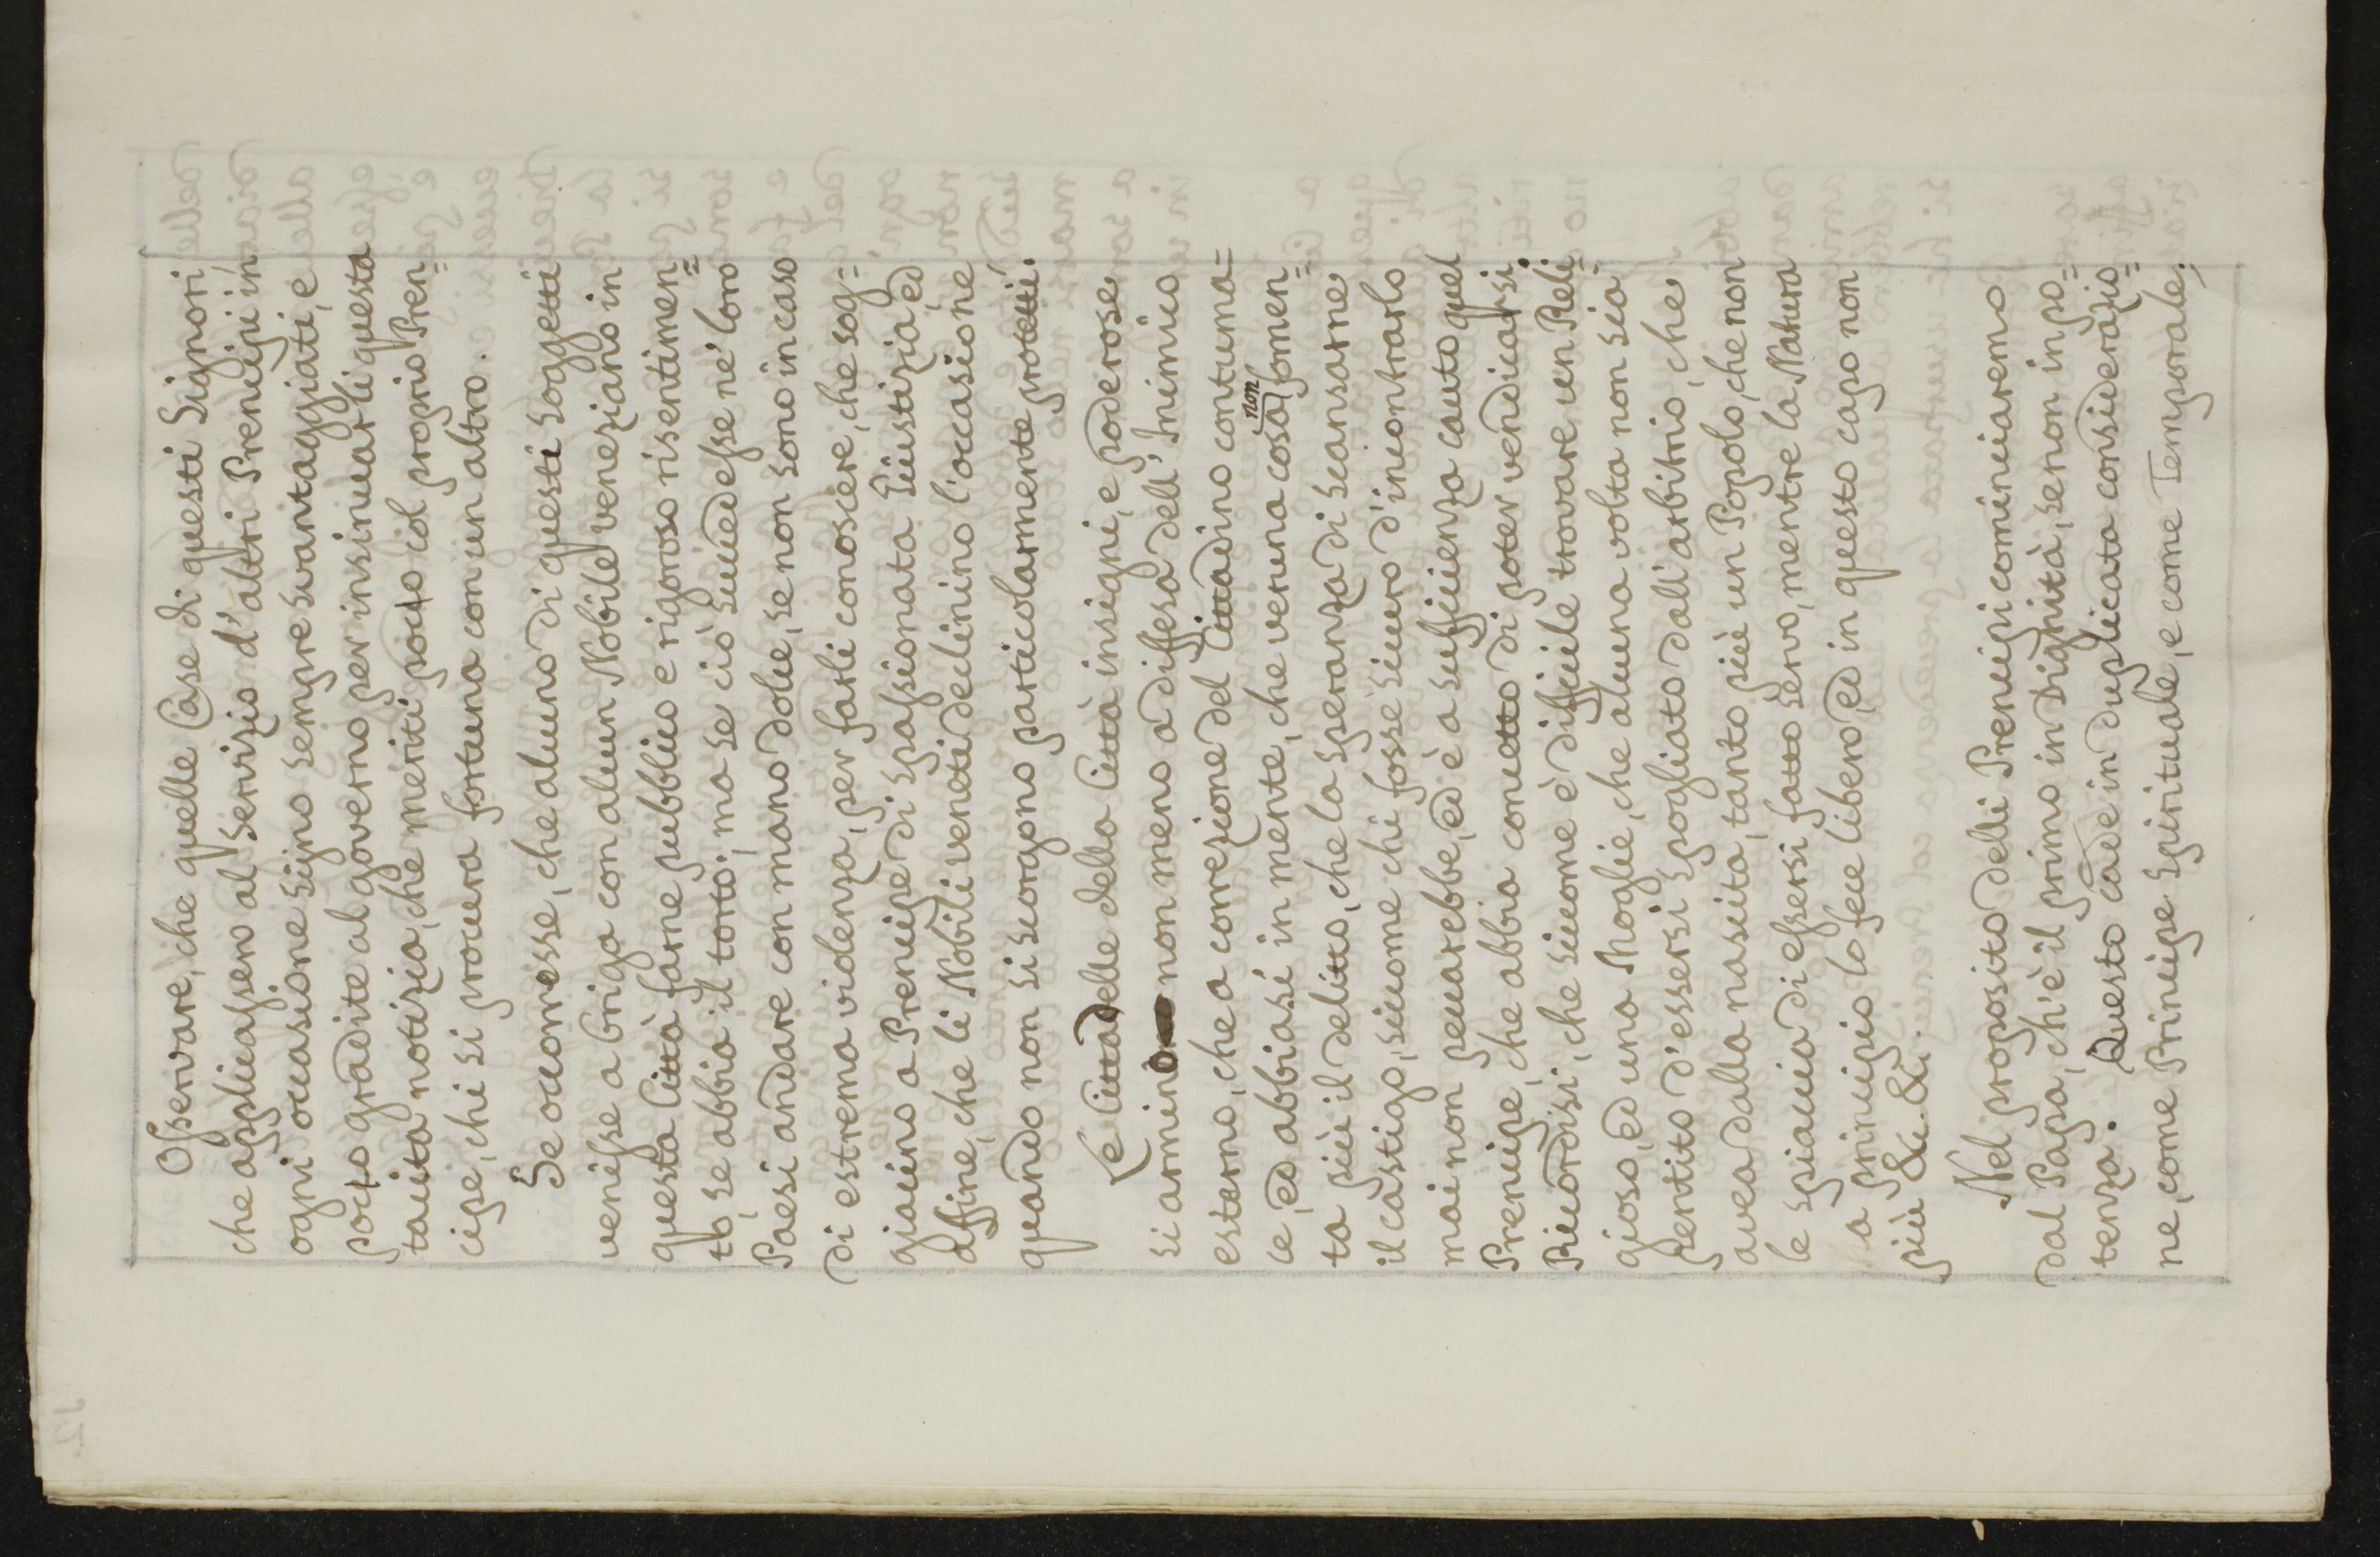 Osservare, che quelle Case di questi Signori
che applicassero al servizio d'altri Prencipi in
ogni occasione sijno sempre svantaggiati, e
poco gradite al governo per insinuarli questa
tacita notizia, che meriti poco col proprio Pren=
cipe, chi si procura fortuna con un altro.
Se occorresse, che alcuno di questi soggetti
venisse a briga con alcun Nobile veneziano in
questa Città farne pubblico e rigoroso risentimen=
to, se abbia il torto; ma se ciò succedesse ne' loro
Paesi andare con mano dolce, se non sono in caso
di estrema violenza, per farli conoscere, che sog=
giaciono a Prencipe di spassionata Giustizia, ed
affine, che li Nobili veneti declinino l'occasione
quando non si scorgono particolarmente protetti.
Le Cittadelle della Città insigni, e poderose
si armino non meno a diffesa dell'Inimico
esterno, che a correzione del Cittadino contuma=
ce, ed abbiasi in mente, che veruna cosa non fomen=
ta più il delitto, che la speranza di scansarne
il castigo, siccome chi fosse sicuro d'incontrarlo
mai non peccarebbe, ed è a sufficienza cauto quel
Prencipe, che abbia concetto di poter vendicarsi.
Ricordisi, che siccome è difficile trovare un Reli=
gioso, ed una Moglie, che alcuna volta non sia
pentito d'essersi spogliato dall'arbitrio, che
avea dalla nascita, tanto più un Popolo, che non
le spiaccia di essersi fatto servo, mentre la Natura
a principio lo fece libero, ed in questo capo non
più &c. &c.
Nel proposito delli Prencipi cominciaremo
dal Papa, ch'è il primo in dignità, se non in po=
tenza. Questo cade in duplicata considerazio=
ne, come Principe spirituale, e come Temporale;